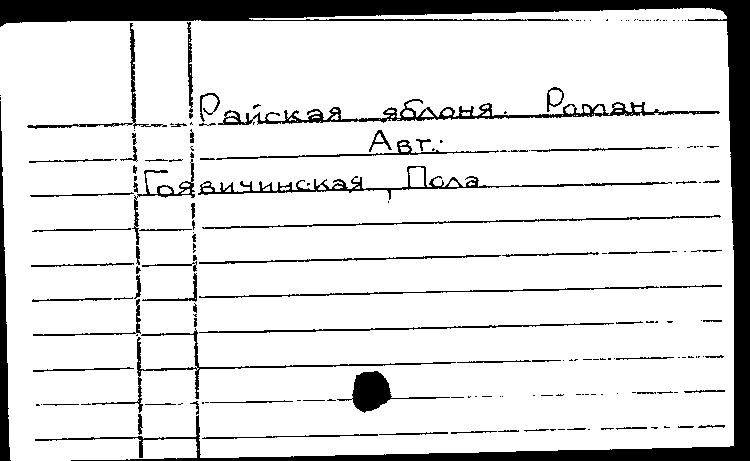 Райская яблоня. Роман.
Авт.:
Гоявичинская, Пола